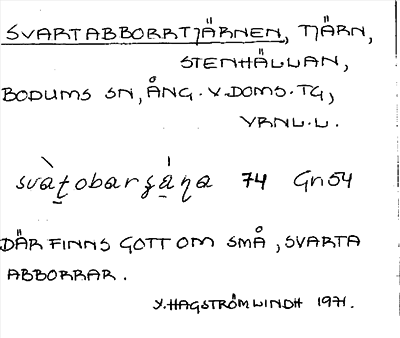 SVARTABBORRTJÄRNEN, TJÄRN,
STENHÄLLAN,
BODUMS SN, ÅNG. V. DOMS. TG,
VRNL. L.
74 Gn 54
DÄR FINNS GOTT OM SMÅ, SVARTA
ABBORRAR.
Y. HAGSTRÖM LINDH 1971.